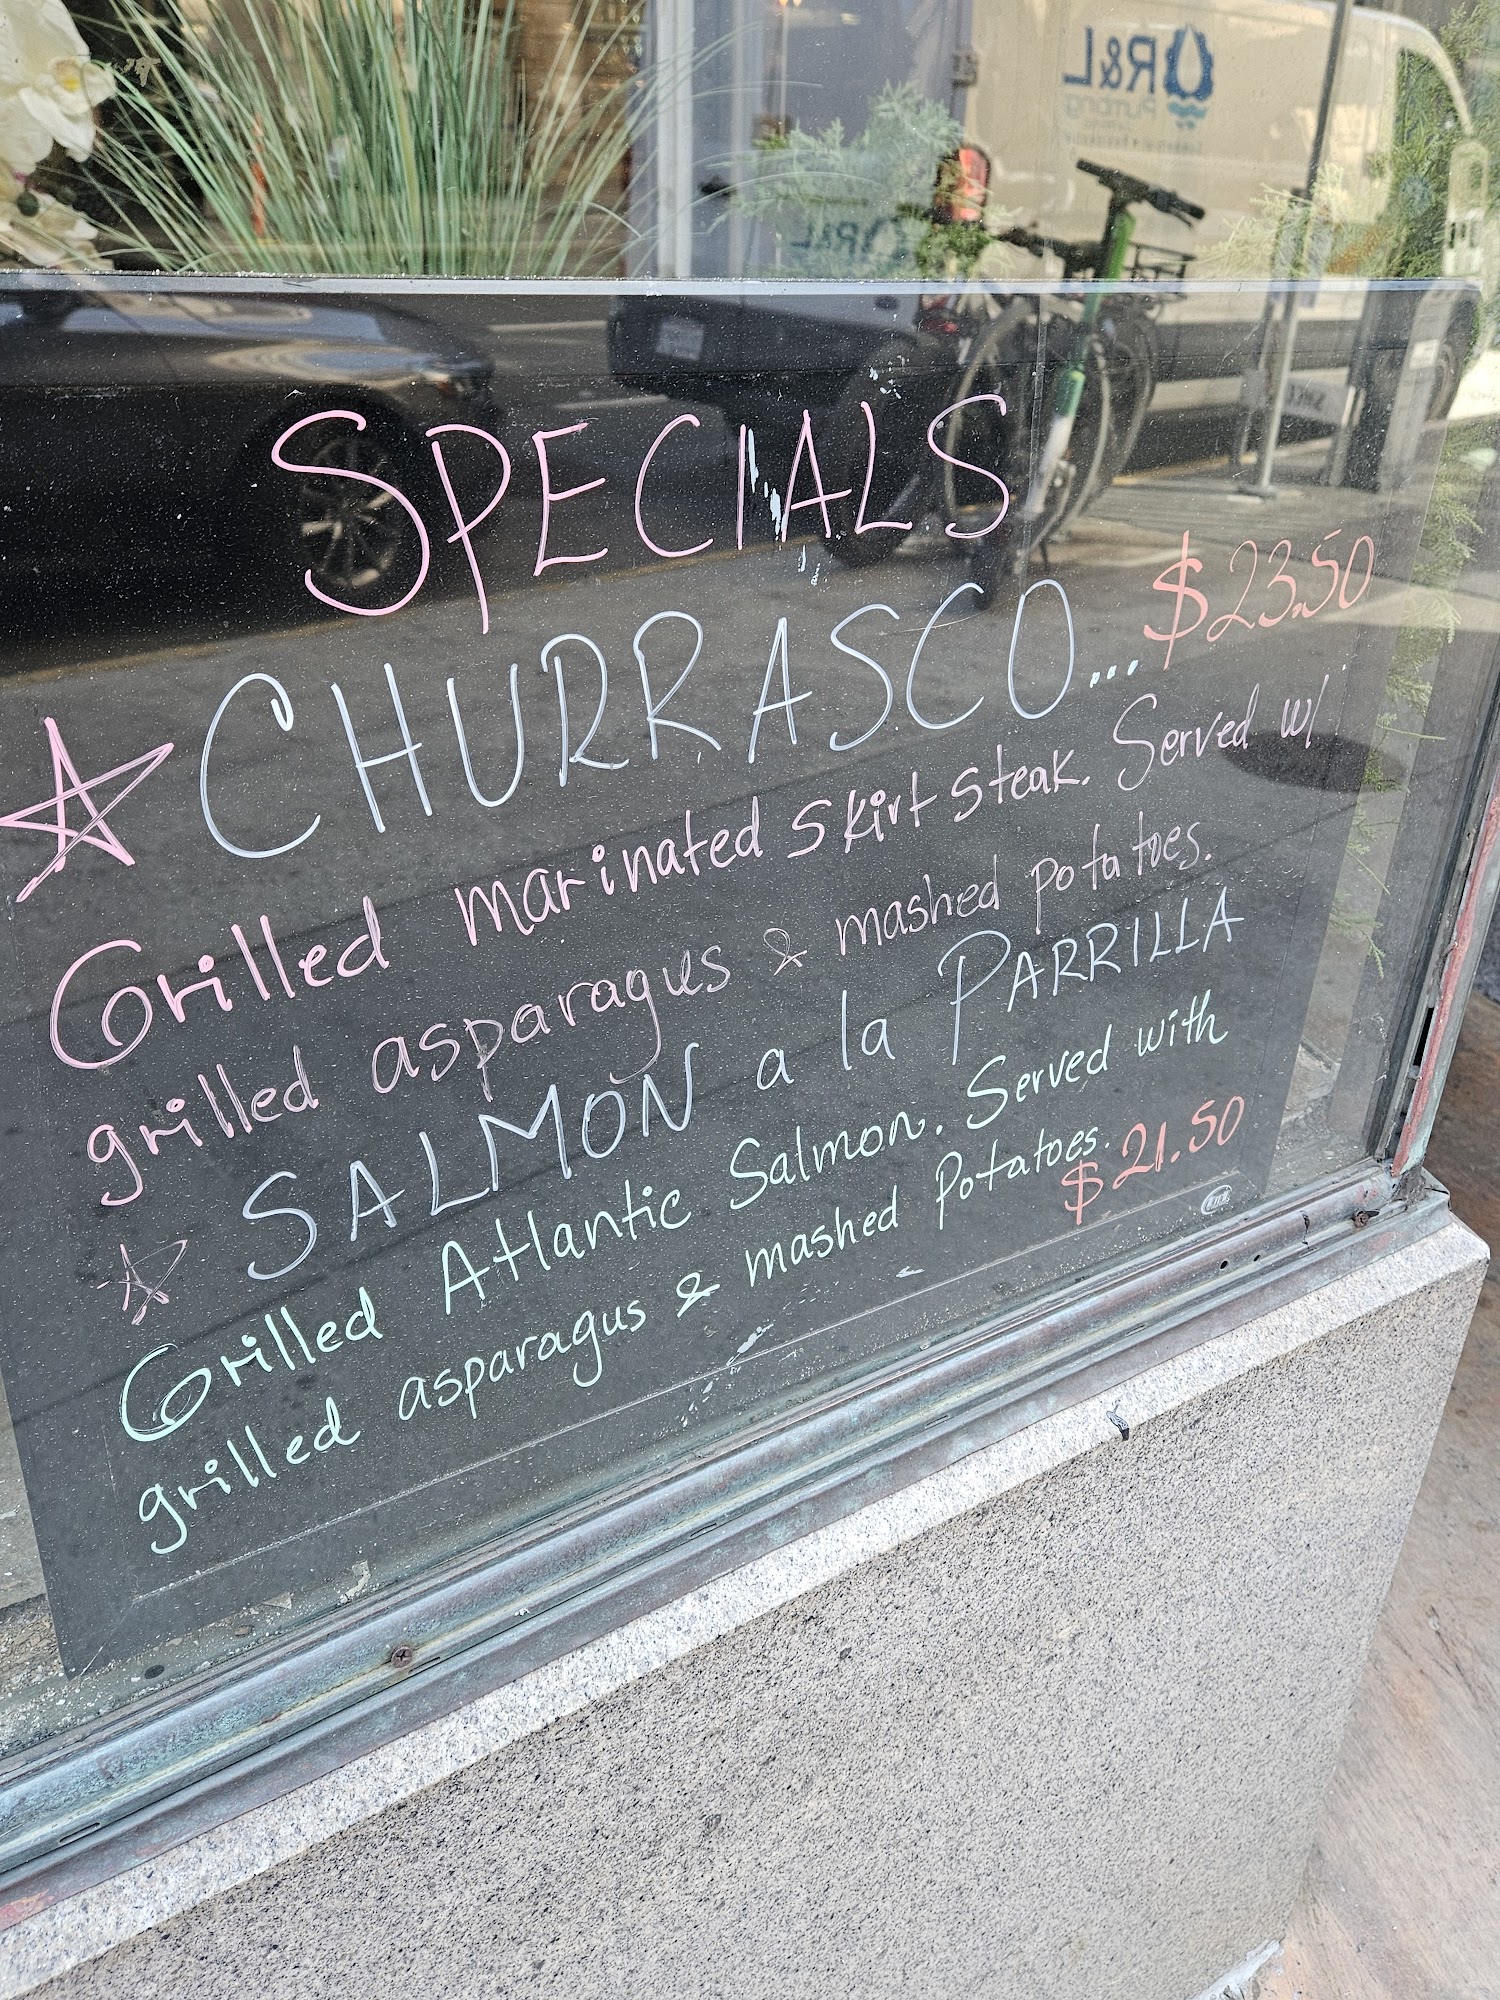 R&L
Plumbing
R&L
SPECIALS
CHURRASCO... $23.50
Grilled marinated skirt steak. Served w/
grilled asparagus & mashed potatoes.
SALMON a la PARRILLA
Grilled Atlantic Salmon. Served with
grilled asparagus & mashed potatoes.
$21.50